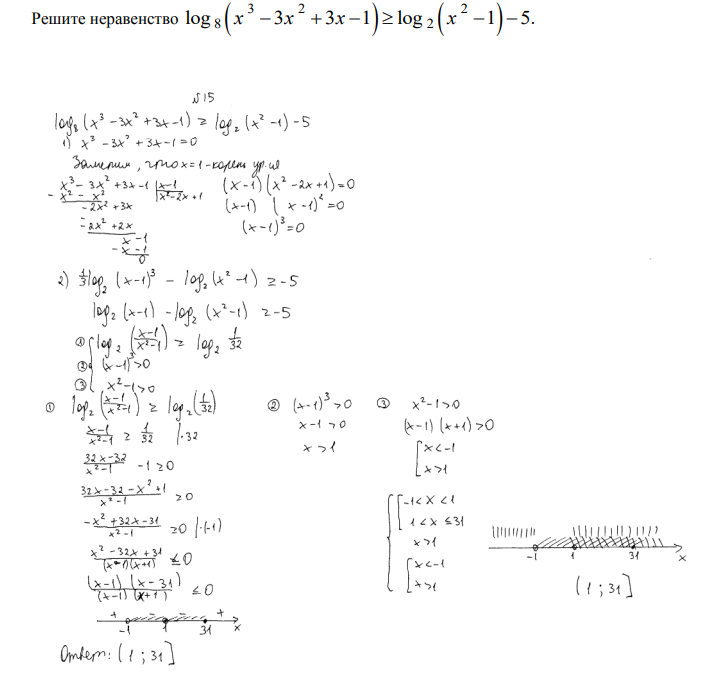 Решите неравенство log₈(x³ −3x² +3x−1)≥log₂(x² −1)−5.
№15
log₈ (x³ −3x² +3x−1) ≥ log₂ (x² −1) −5
1) x³ −3x² +3x−1=0
Заметим, что x=1 − корень ур-ия
x³ − 3x² +3x −1 | x−1
− x³ − x² | x² −2x +1
−2x² +3x
− −2x² +2x
x −1
− x −1
0
(x−1) (x² −2x+1) =0
(x−1) (x−1)² =0
(x−1)³ =0
2) ⅓log₂ (x−1)³ − log₂ (x² −1) ≥ −5
log₂ (x−1) − log₂ (x² −1) ≥ −5
① { log₂ ((x−1)/(x²−1)) ≥ log₂ 1/32
② (x−1)³ >0
③ x² −1 >0
① log₂ ((x−1)/(x²−1)) ≥ log₂ (1/32)
(x−1)/(x²−1) ≥ 1/32 |·32
(32x−32)/(x²−1) −1 ≥0
(32x−32−x²+1)/(x²−1) ≥0
(−x²+32x−31)/(x²−1) ≥0 |·(−1)
(x²−32x+31)/((x−1)(x+1)) ≤0
((x−1)(x−31))/((x−1)(x+1)) ≤0
+ − − +
−1 1 31 x
② (x−1)³ >0
x−1 >0
x >1
③ x²−1>0
(x−1) (x+1) >0
[ x<−1
x>1
{ [ −1< x <1
1 < x ≤31
x>1
[ x<−1
x>1
−1 1 31 x
(1 ; 31]
Ответ: (1 ; 31]